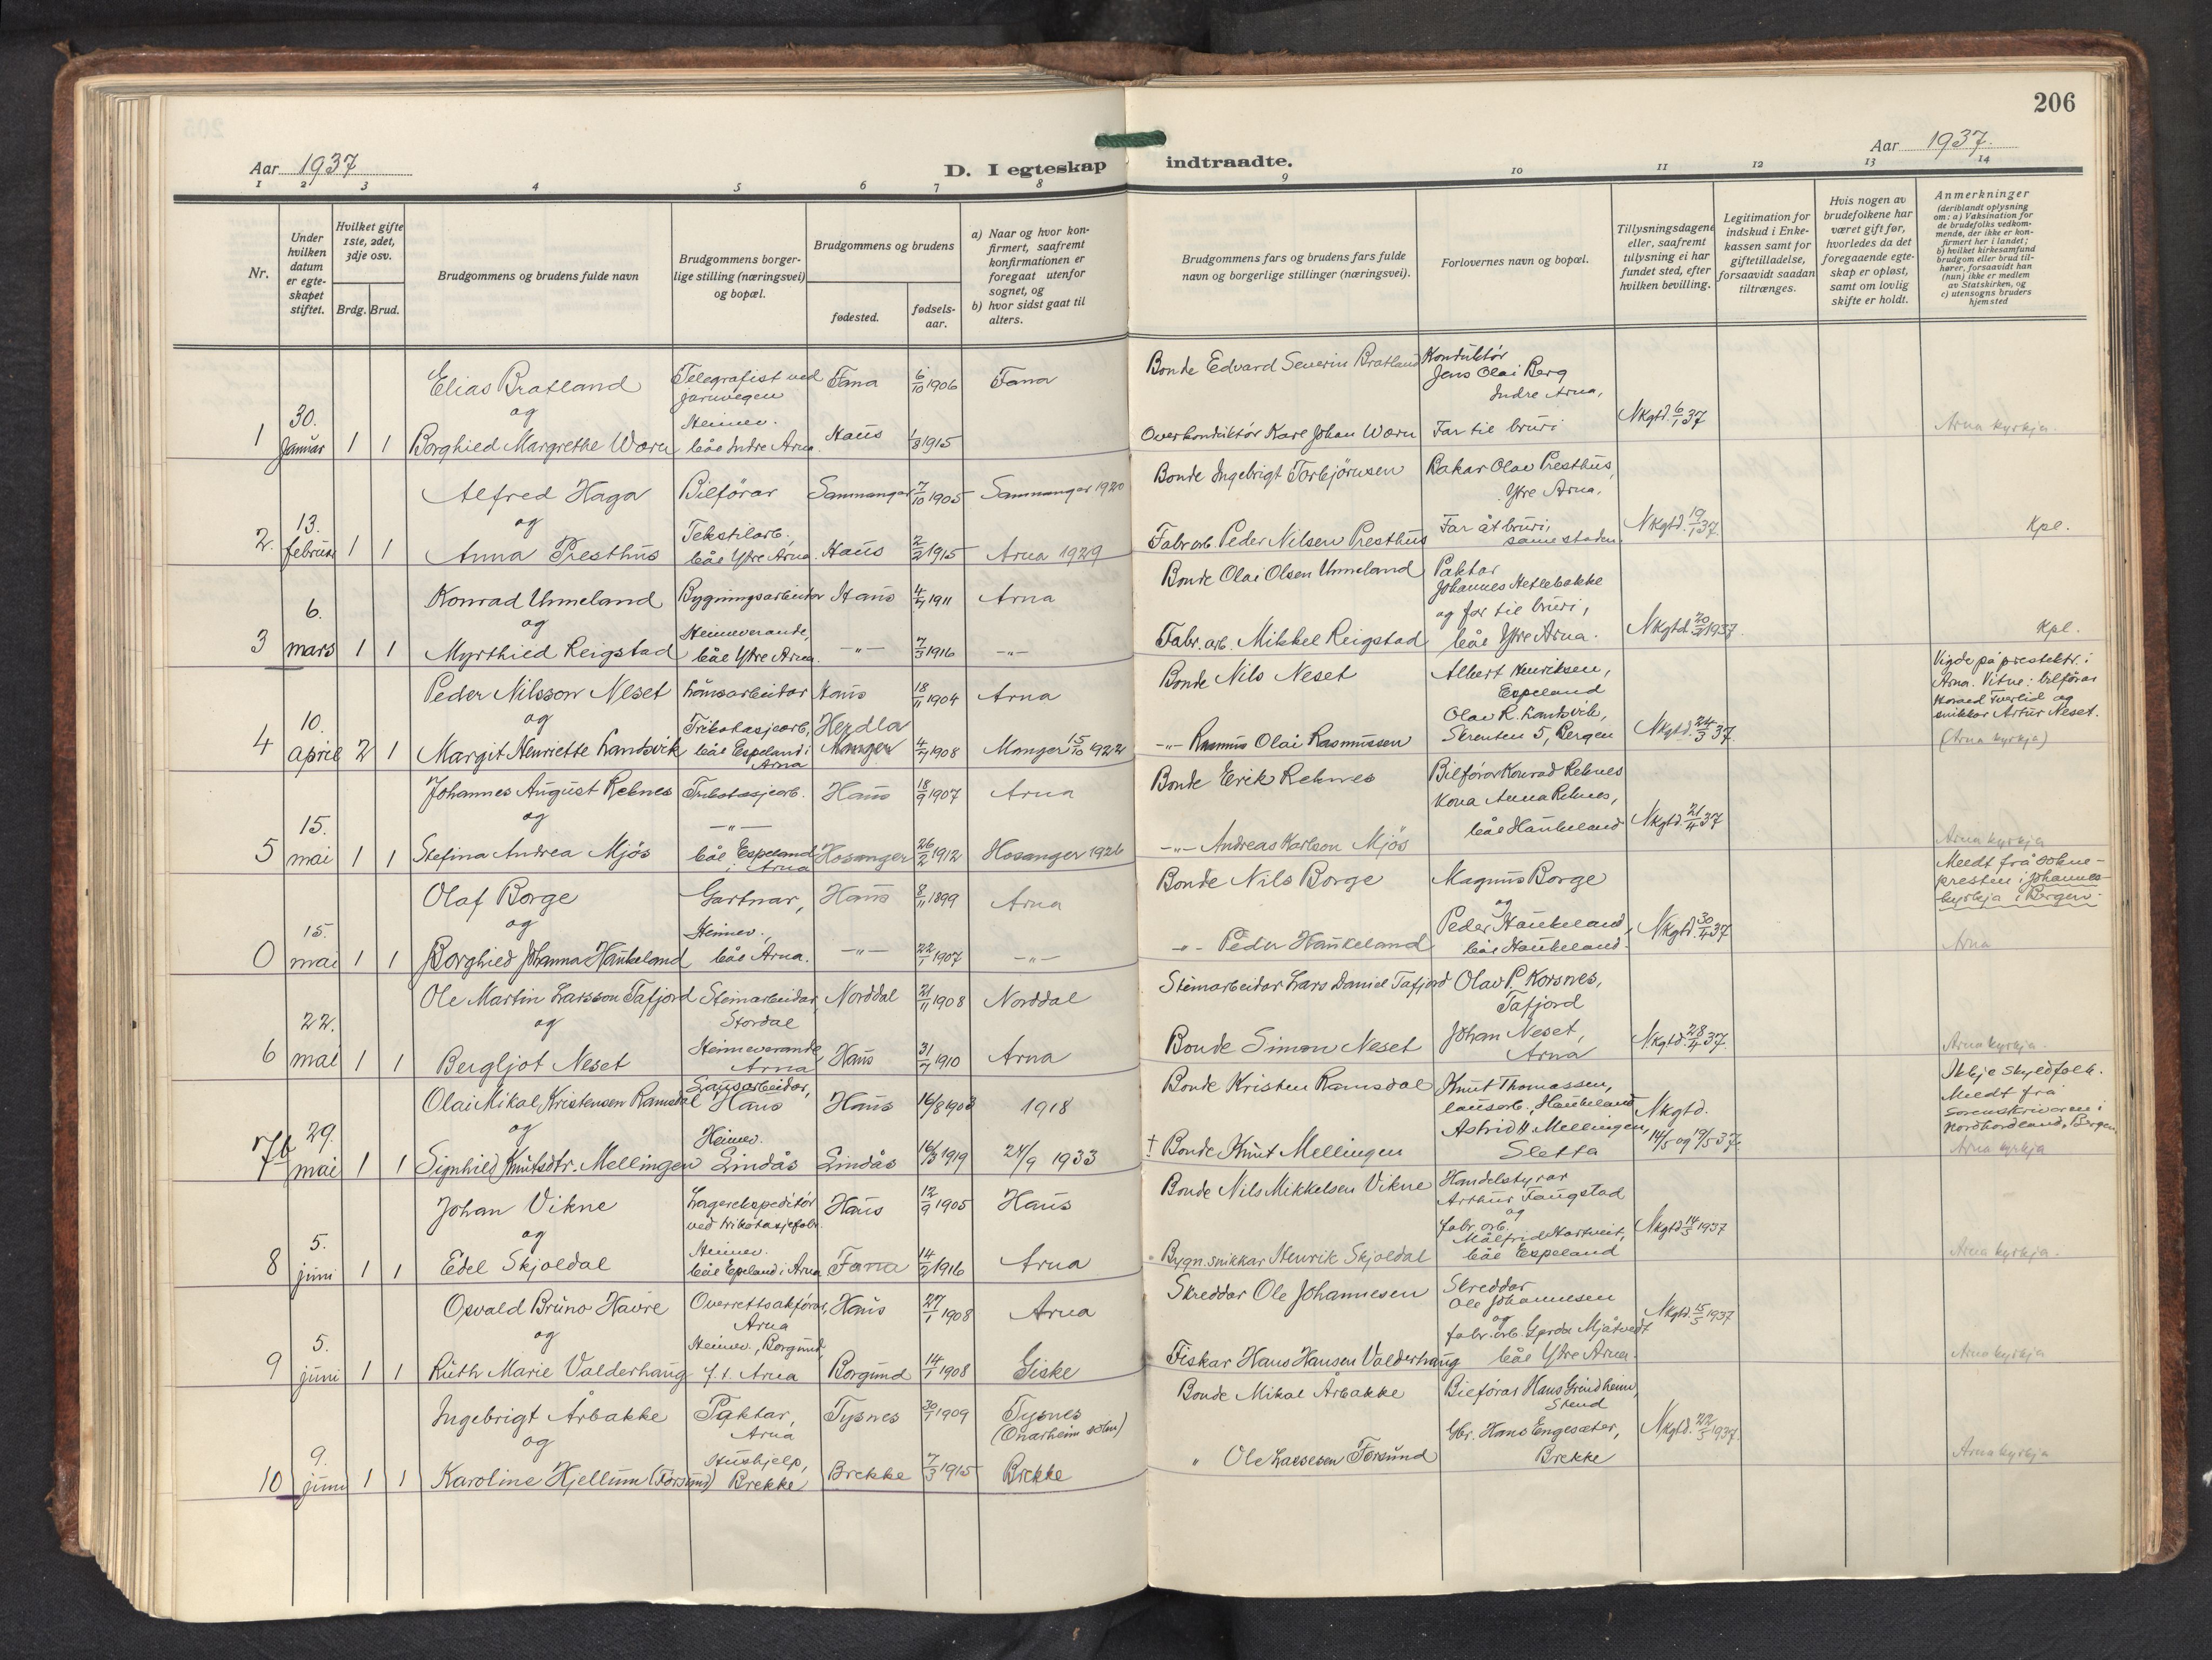 206
Aar 1937
D. I egteskap indtraadte.
Aar 1937.
1 2 3 4 5 6 7 8 9 10 11 12 13 14
Nr.
Under hvilken datum er egteskapet stiftet.
Hvilket gifte 1ste, 2det, 3dje osv.
Brdg. Brud.
Brudgommens og brudens fulde navn
Brudgommens borgerlige stilling (næringsvei) og bopæl.
Brudgommens og brudens
fødested.
fødselsaar.
a) Naar og hvor konfirmert, saafremt konfirmationen er foregaat utenfor sognet, og
b) hvor sidst gaat til alters.
Brudgommens fars og brudens fars fulde navn og borgerlige stillinger (næringsvei).
Forlovernes navn og bopæl.
Tillysningsdagene eller, saafremt tillysning ei har fundet sted, efter hvilken bevilling.
Legitimation for indskud i Enkekassen samt for giftetilladelse, forsaavidt saadan tiltrænges.
Hvis nogen av brudefolkene har været gift før, hvorledes da det foregaaende egteskap er opløst, samt om lovlig skifte er holdt.
Anmerkninger
(deriblandt oplysning om: a) Vaksination for de brudefolks vedkommende, der ikke er konfirmert her i landet; b) hvilket kirkesamfund brudgom eller brud tilhører, forsaavidt han (hun) ikke er medlem av Statskirken, og c) utensogns bruders hjemsted
Elias Bratland Telegrafist ved jarnvegen Fana 6/10 1906 Fana Bonde Edvard Severin Bratland Konduktør Jens Olai Berg Indre Arna,
og
1 30. Januar 1 1 Borghild Margrethe Wærn Heimev. båe Indre Arna. Haus 1/8 1915 Overkonduktør Karl Johan Wærn Far til bruri Nkgtd. 6/1 37 Arna kyrkja.
Alfred Haga Bilförar Samnanger 7/10 1905 Samnanger 1920 Bonde Ingebrigt Torbjörnsen Bakar Olav Presthus, Ytre Arna,
og
2. 13. februar 1 1 Anna Presthus Tekstilarb. båe Ytre Arna. Haus 2/2 1915 Arna 1929 Fabr. arb. Peder Nilsen Presthus Far åt bruri, same staden. Nkgtd. 19/1 37. Kpl.
Konrad Unneland Bygningsarbeidar Haus 4/4 1911 Arna Bonde Olai Olsen Unneland Paktar Johannes Hetlebakke
og
3 6. mars 1 1 Myrthild Reigstad Heimeverande, båe Ytre Arna. -"- 7/3 1916 -"- Fabr. arb. Mikkel Reigstad og far til bruri, båe Ytre Arna. Nkgtd. 20/2 1937. Kpl.
Peder Nilsson Neset Lausarbeidar Haus 18/11 1904 Arna Bonde Nils Neset Albert Henriksen, Espeland
og
4 10. april 2 1 Margit Henriette Landsvik Trikotasjearb, båe Espeland i Arna Herdla Manger 4/4 1908 Manger 15/10 1922 -"- Rasmus Olai Rasmussen Olav R. Landsvik, Skreuten 5, Bergen Nkgtd. 24/3 37. Vigde på prestektr. i Arna. Vitne: bilförar Konrad Tverlid og snikkar Artur Neset. (Arna kyrkja)
Johannes August Reknes Trikotasjearb. Haus 18/9 1907 Arna Bonde Erik Reknes Bilförar Konrad Reknes
og -"-
5 15. mai 1 1 Stefina Andrea Mjös båe Espeland i Arna Hosanger 26/2 1912 Hosanger 1926 -"- Andreas Karlson Mjös Kona Anna Reknes, båe Haukeland Nkgtd. 21/4 37 Arna kyrkja
Olaf Borge Gartnar, Haus 8/11 1899 Arna Bonde Nils Borge Magnus Borge Meldt frå sokne-presten i Johannes-kyrkja i Bergen.
og
0 15. mai 1 1 Borghild Johanna Haukeland Heimev., båe Arna. -"- 22/1 1907 -"- -"- Peder Haukeland og Peder Haukeland, båe Haukeland. Nkgtd. 30/4 37 Arna
Ole Martin Larsson Tafjord Steinarbeidar, Stordal Norddal 21/11 1908 Norddal Steinarbeidar Lars Daniel Tafjord Olav P. Korsnes, Tafjord
og
6 22. mai 1 1 Bergljot Neset Heimeverande Arna Haus 31/7 1910 Arna Bonde Simon Neset Johan Neset, Arna Nkgtd. 28/4 37. Arna kyrkja.
Olai Mikal Kristensen Ramsdal Lausarbeidar, Haus Haus 16/8 1903 1918 Bonde Kristen Ramsdal Knut Thomassen, lausarb., Haukeland Ikkje skyldfolk. Meldt frå Sorenskrivaren i Nordhordland, Bergen
og
7b 29. mai 1 1 Signhild Knutsdtr. Mellingen Heimev. Lindås Lindås 16/3 1919 24/9 1933 † Bonde Knut Mellingen Astrid H. Mellingen, Sletta Nkgtd. 14/5 og 19/5 37. Arna kyrkja
Johan Vikne Lagerekspeditör ved trikotasjefabr. Haus 12/9 1905 Haus Bonde Nils Mikkelsen Vikne Handelstyrar Arthur Taugstad
og
8 5. juni 1 1 Edel Skjoldal Heimev. båe Espeland i Arna Fana 14/2 1916 Arna Bygn. snikkar Henrik Skjoldal og fabr. arb. Målfrid Hartveit, båe Espeland Nkgtd 14/5 1937 Arna kyrkja.
Osvald Bruno Havre Overrettsakförar, Arna Haus 27/1 1908 Arna Skreddar Ole Johannesen Skreddar Ole Johannesen
og
9 5. juni 1 1 Ruth Marie Valderhaug Heimev., Borgund, f. t. Arna Borgund 14/1 1908 Giske Fiskar Hans Hansen Valderhaug og fabr. arb. Gerda Mjåtvedt båe Ytre Arna. Nkgtd. 15/5 1937 Arna kyrkja
Ingebrigt Årbakke Paktar, Arna Tysnes 30/1 1909 Tysnes (Onarheim sokn) Bonde Mikal Årbakke Bilförar Hans Grindheim, Stend
og
10 9. juni 1 1 Karoline Hjellum (Forsund) Hushjelp, Brekke Brekke 7/3 1915 Brekke " Ole Lassesen Forsund Gbr. Hans Engesæter, Brekke Nkgtd. 22/5 1937. Arna kyrkja